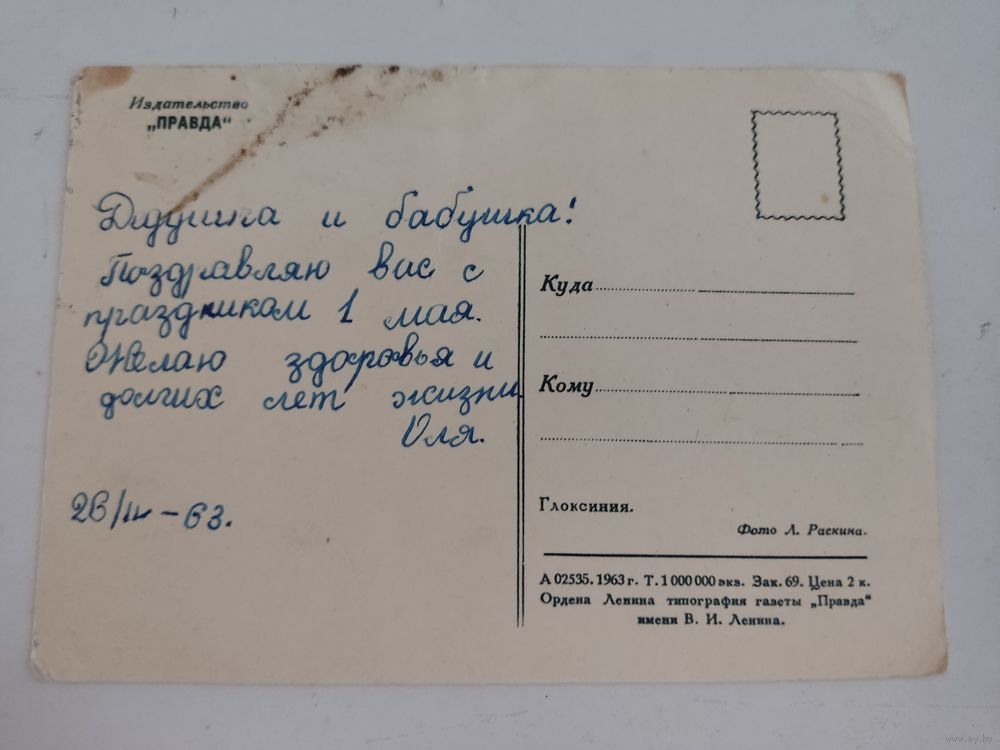 Издательство
„ПРАВДА“
Дедушка и бабушка!
Поздравляю вас с
праздником 1 мая.
Желаю здоровья и
долгих лет жизни.
Оля.
26/IV – 63.
Куда
Кому
Глоксиния.
Фото Л. Раскина.
А 02535. 1963 г. Т. 1 000 000 экз. Зак. 69. Цена 2 к.
Ордена Ленина типография газеты „Правда“
имени В. И. Ленина.
www.ay.by